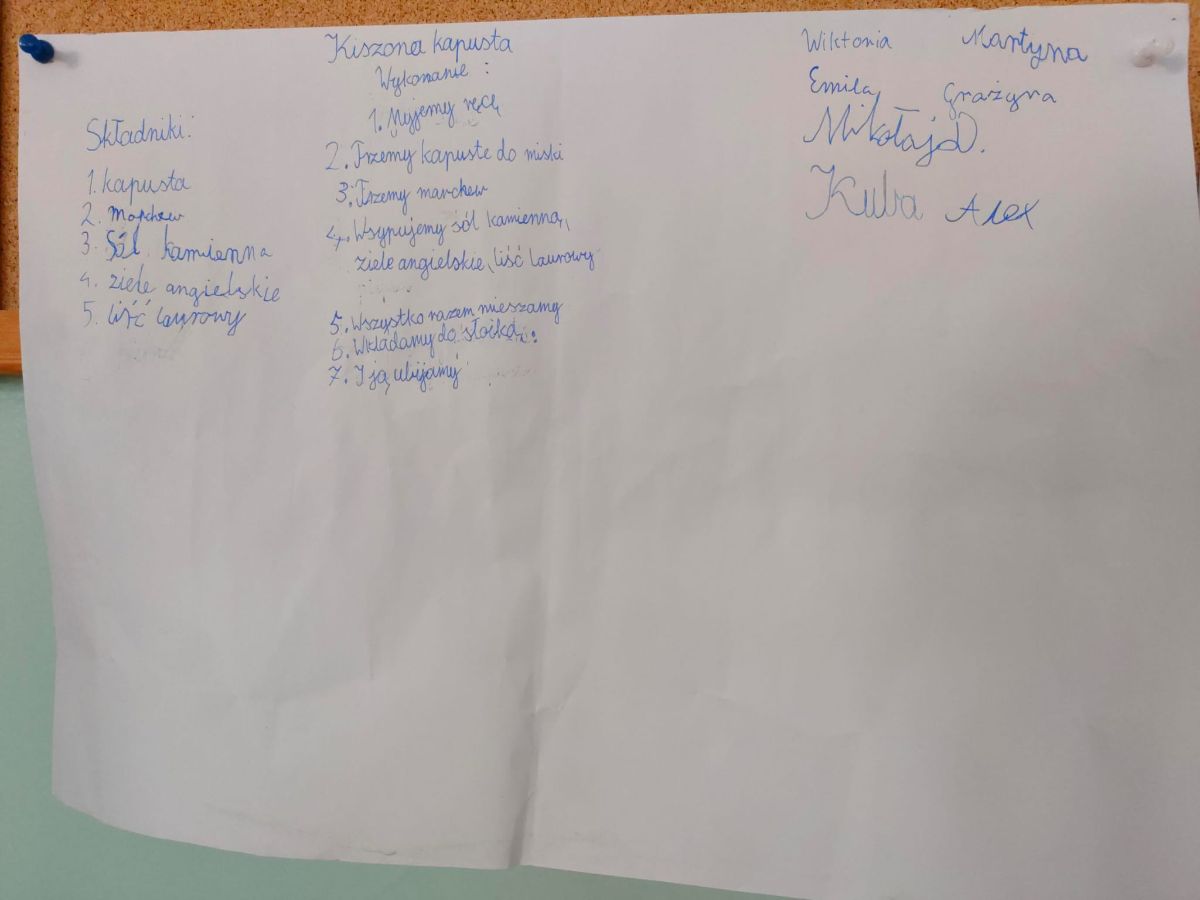 Kiszona kapusta
Składniki:
1. kapusta
2. Marchew
3. Sól kamienna
4. ziele angielskie
5. liść laurowy
Wykonanie:
1. Myjemy ręcę
2. Trzemy kapuste do miski
3. Trzemy marchew
4. Wsypujemy sól kamienną,
ziele angielskie, liść laurowy
5. Wszystko razem mieszamy
6. Wkładamy do słoika
7. I ją ubijamy
Wiktoria Martyna
Emila Grażyna
Mikołaj D.
Kuba Alex